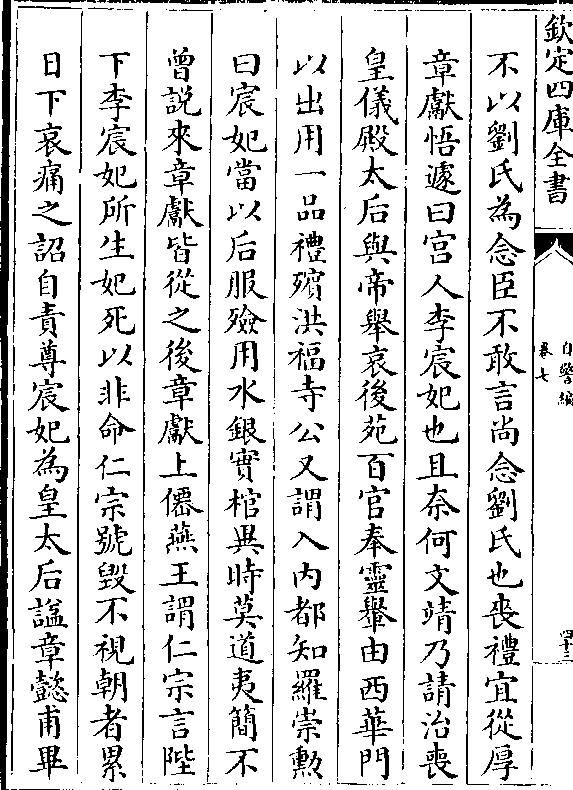 欽定四庫全書
自警編
卷七
四十三
不以劉氏為念臣不敢言尚念劉氏也喪禮宜從厚
章獻悟遽曰宮人李宸妃也且奈何文靖乃請治喪
皇儀殿太后與帝舉哀後苑百官奉靈轝由西華門
以出用一品禮殯洪福寺公又謂入内都知羅崇勲
曰宸妃當以后服殮用水銀實棺異時莫道夷簡不
曾説來章獻皆從之後章獻上僊燕王謂仁宗言陛
下李宸妃所生妃死以非命仁宗號毀不視朝者累
日下哀痛之詔自責尊宸妃為皇太后諡章懿甫畢